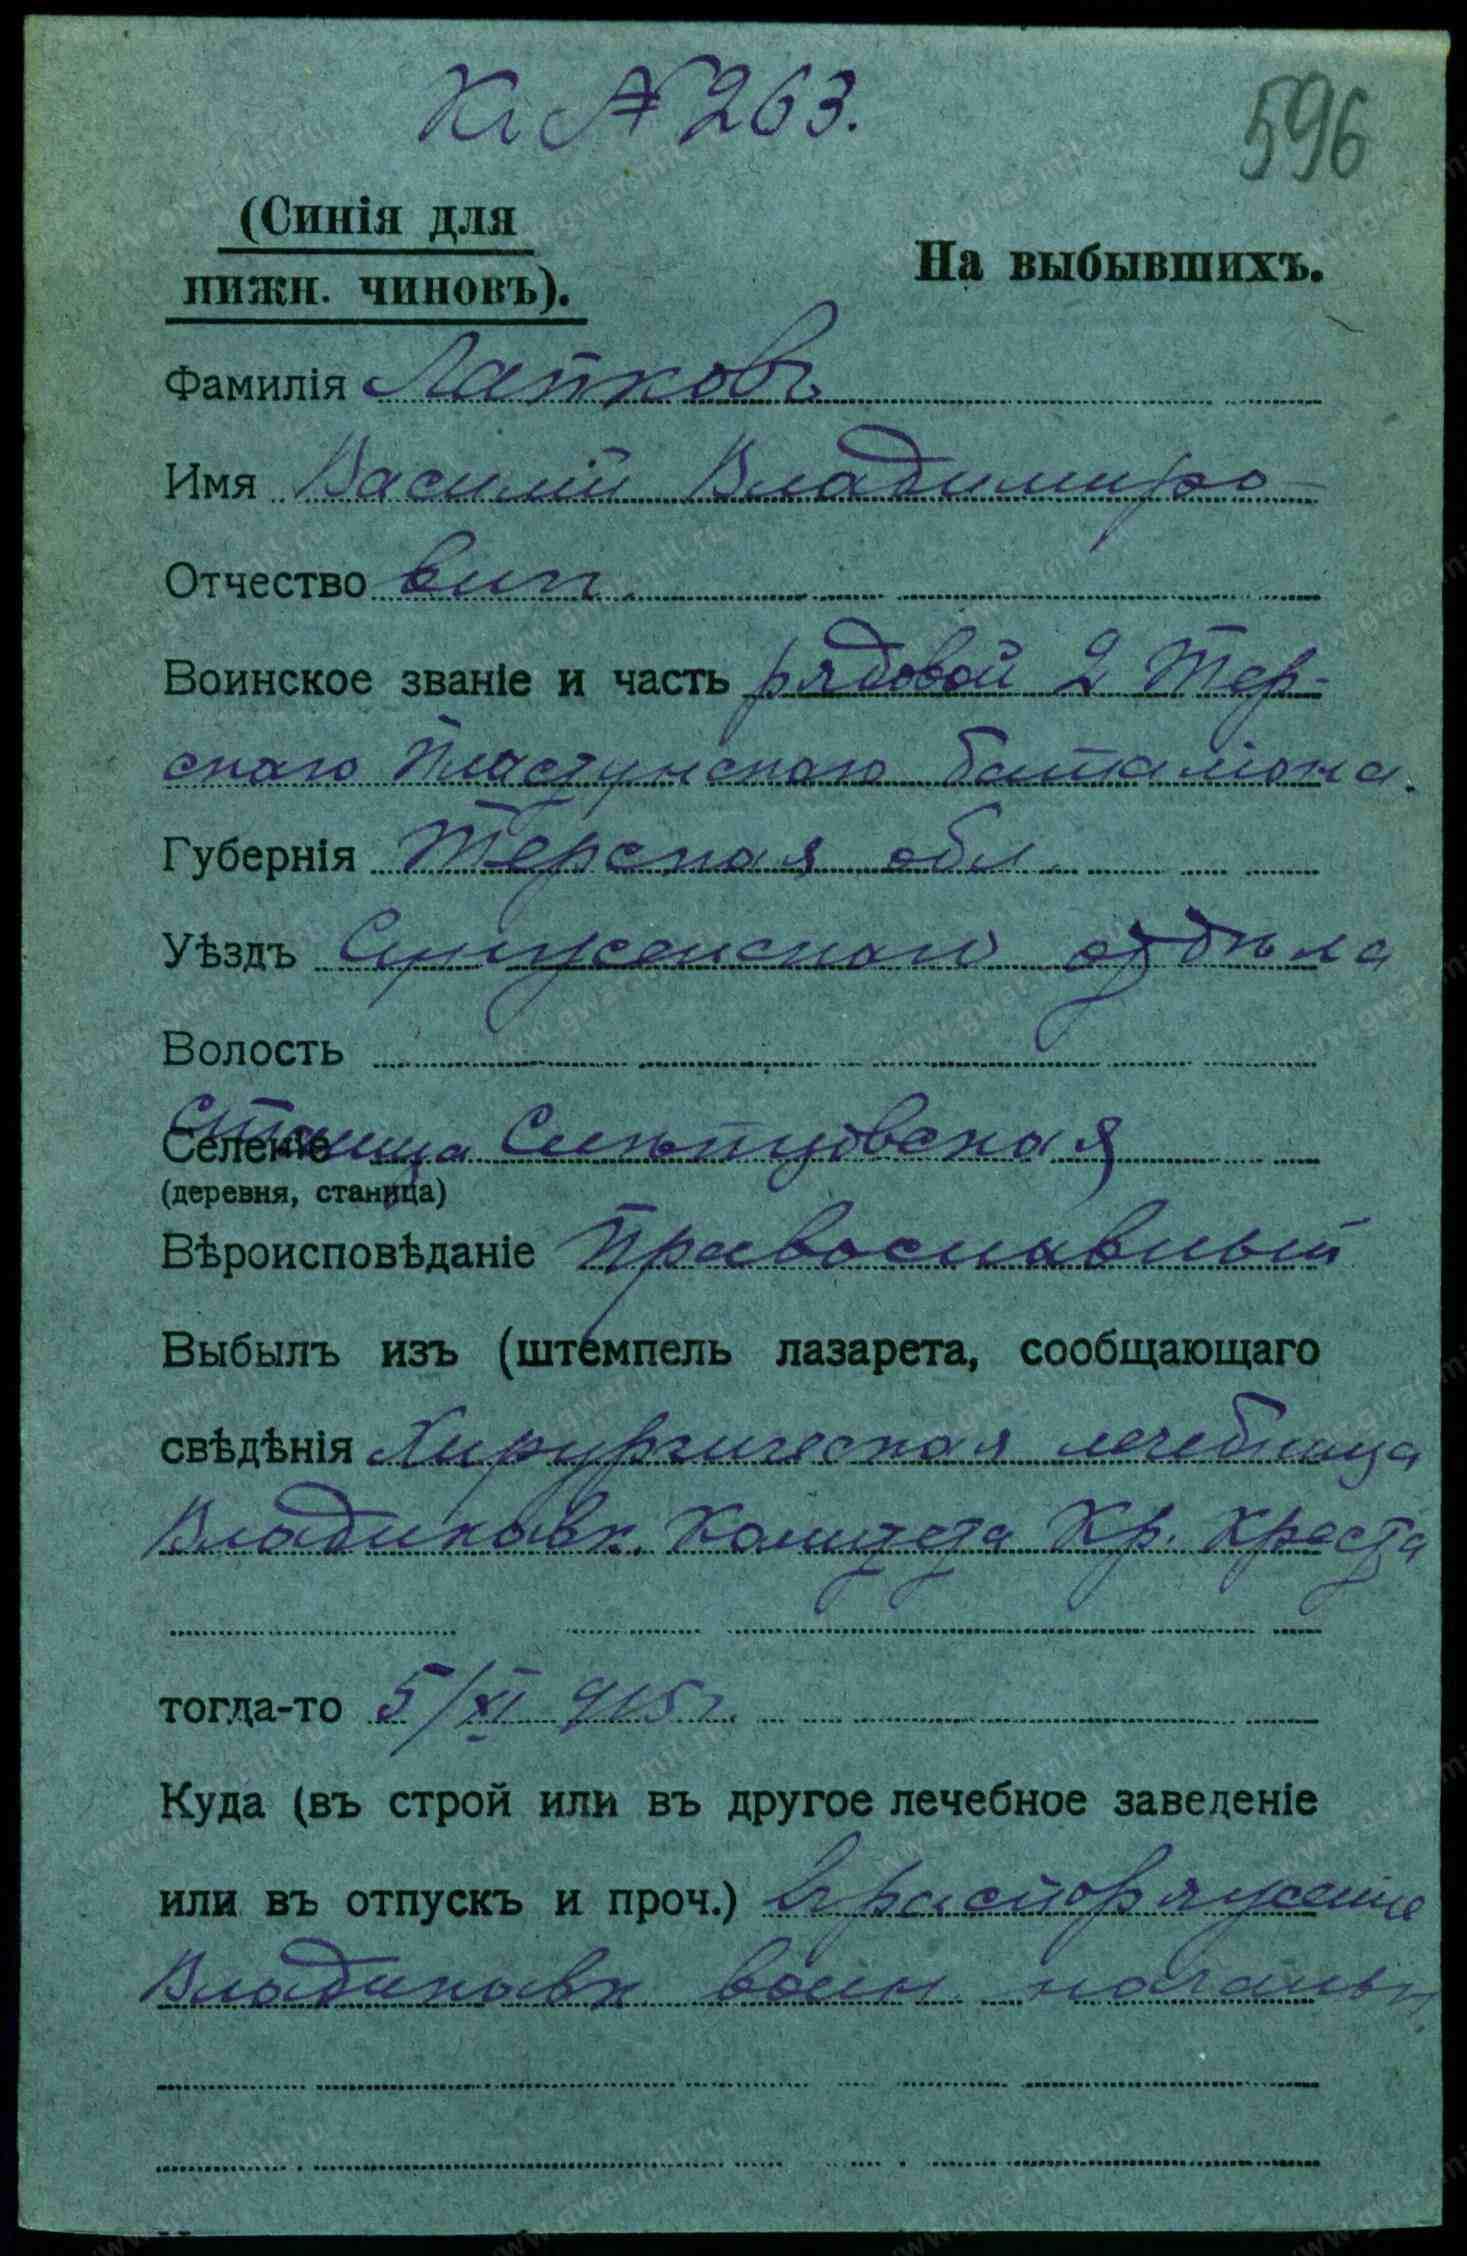 Къ № 263.
596
(Синія для
нижн. чиновъ).
На выбывшихъ.
Фамилія Лапковъ
Имя Василій Владимиро-
Отчество вичъ.
Воинское званіе и часть рядовой 2 Тер-
скаго Пластунскаго баталіона.
Губернія Терская обл.
Уѣздъ Сунженскаго отдѣла
Волость
Селеніе Станица Слѣпцовская
(деревня, станица)
Вѣроисповѣданіе Православный
Выбылъ изъ (штемпель лазарета, сообщающаго
свѣдѣнія Хирургическая лечебница
Владикавк. Комитета Кр. Креста
тогда-то 5/XI 915 г.
Куда (въ строй или въ другое лечебное заведеніе
или въ отпускъ и проч.) въ распоряженіе
Владикавк воин. начальн.